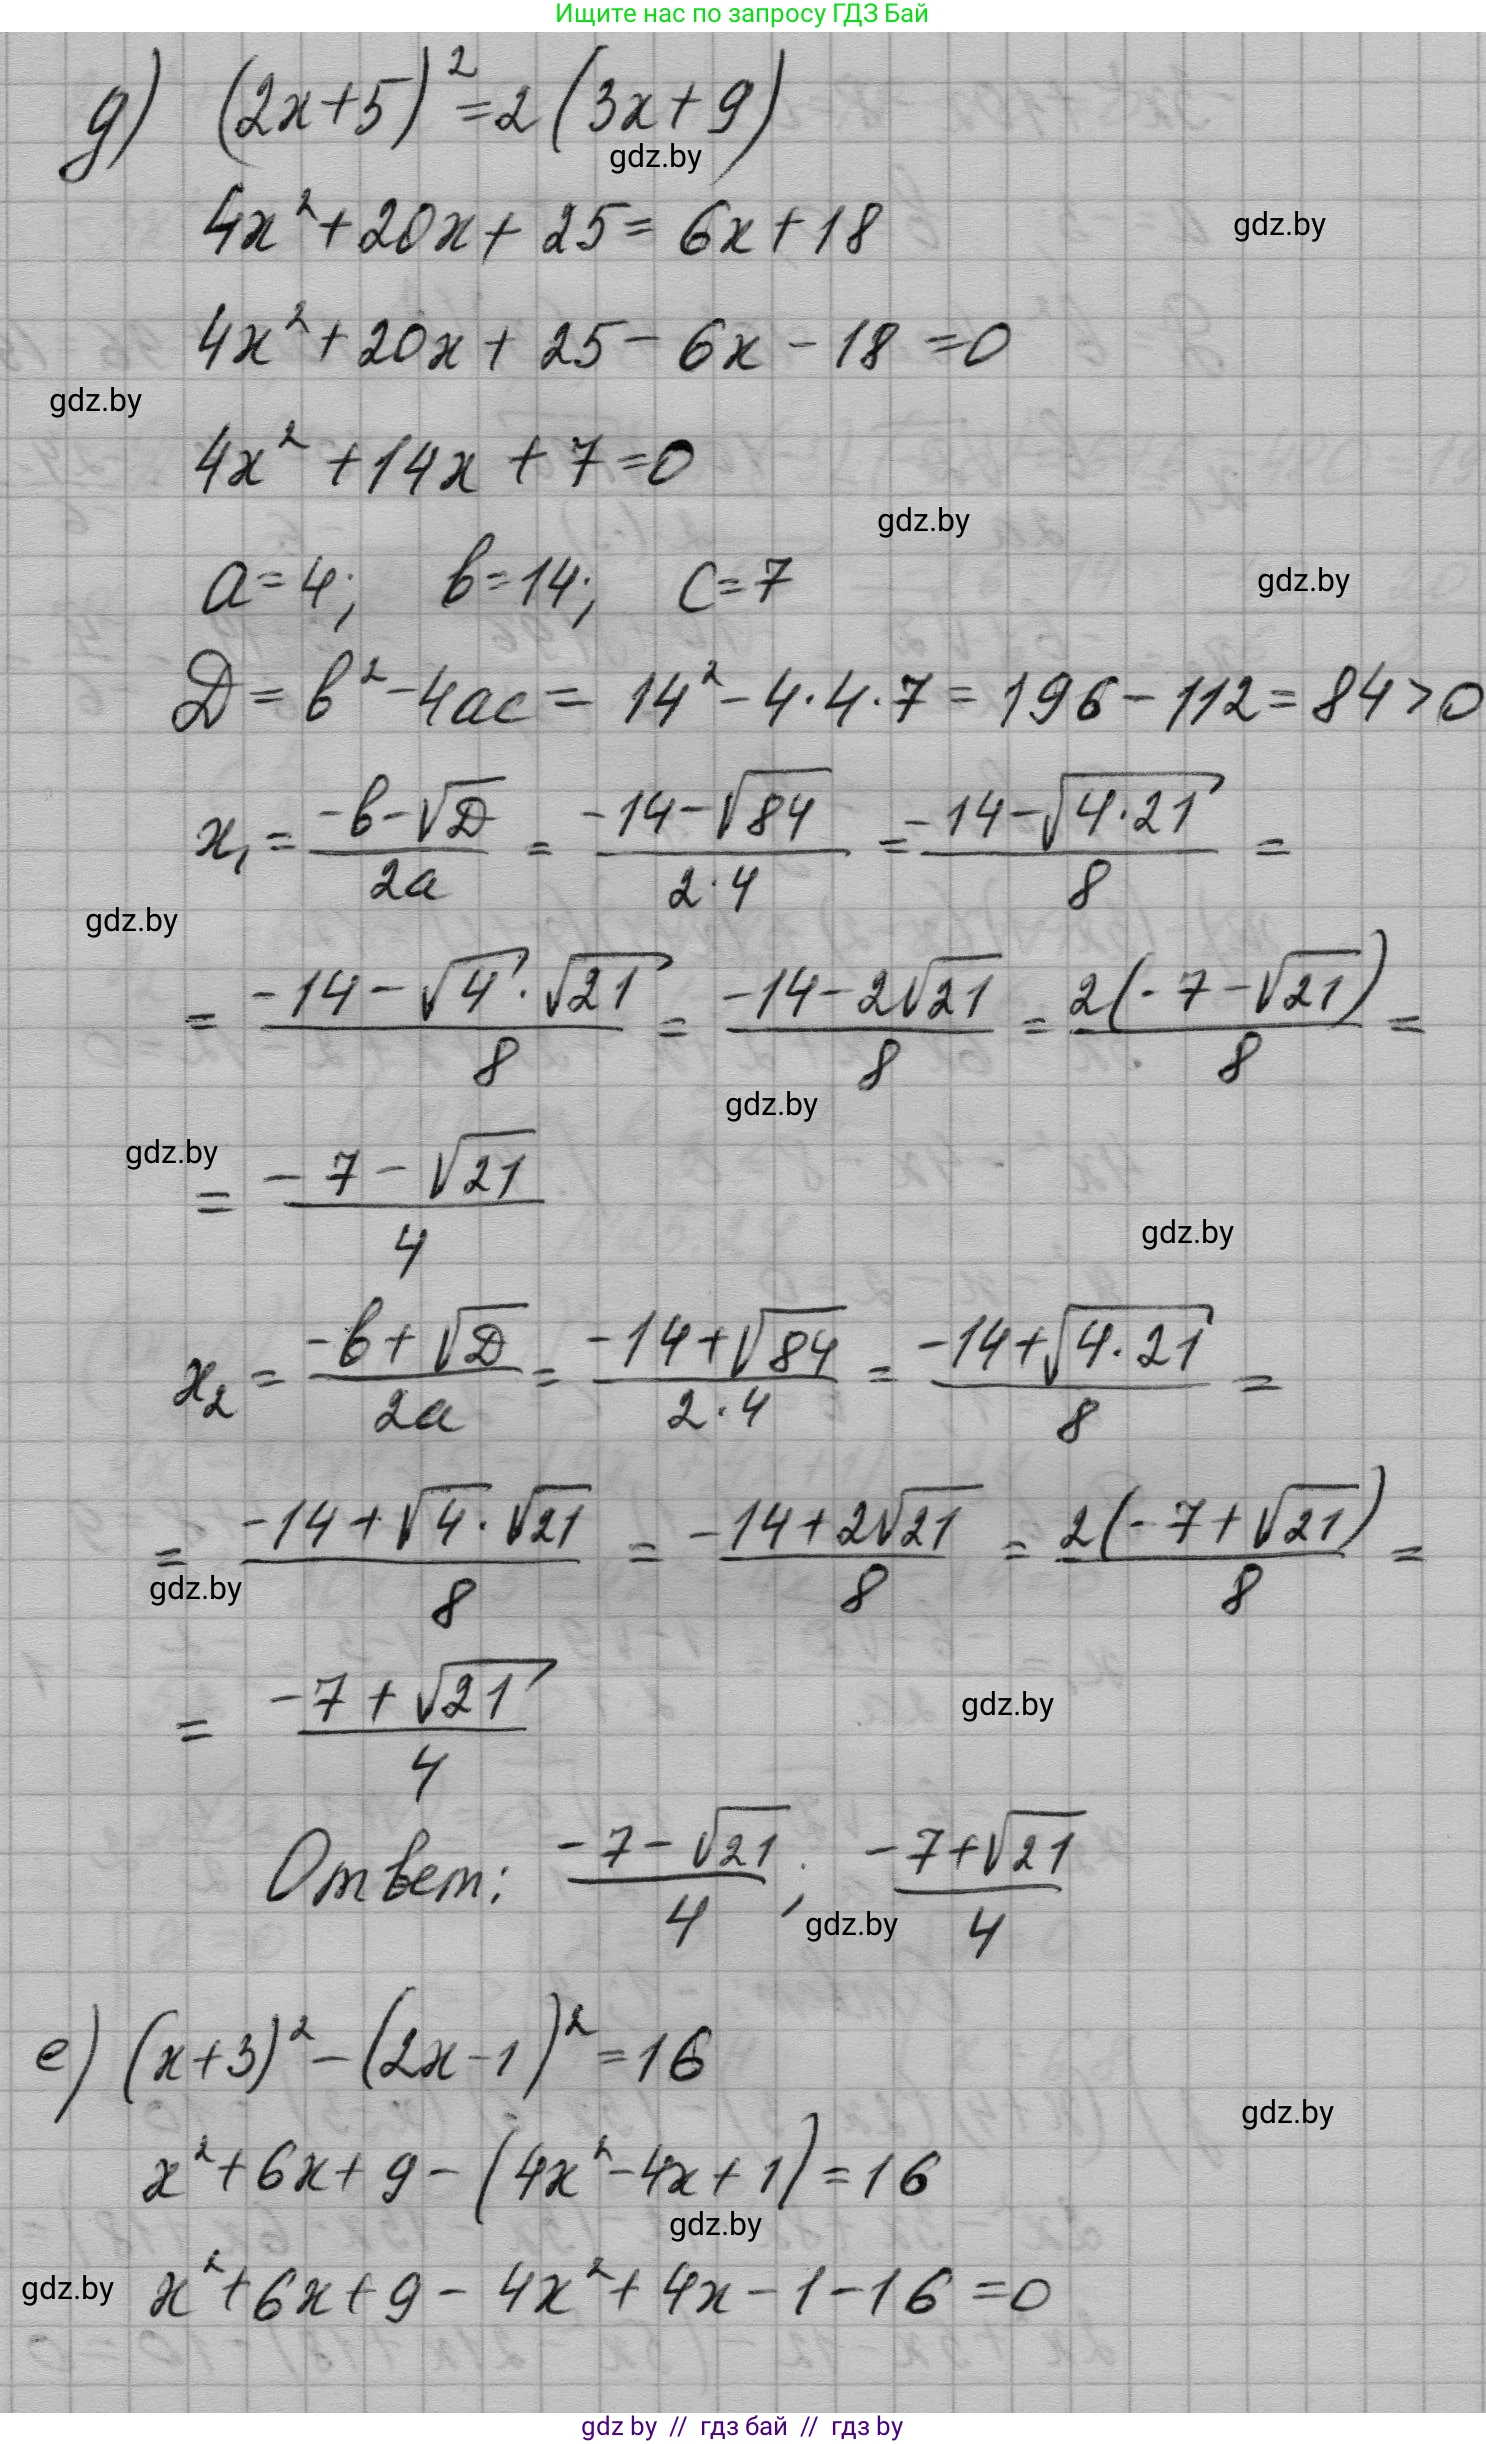 Ищите нас по запросу ГДЗ Бай
д) (2x+5)²=2(3x+9)
gdz.by
4x²+20x+25=6x+18
gdz.by
4x²+20x+25-6x-18=0
gdz.by
4x²+14x+7=0
gdz.by
a=4; b=14; c=7
gdz.by
Д=b²-4ac=14²-4·4·7=196-112=84>0
x₁=(-b-√Д)/2a=(-14-√84)/2·4=(-14-√4·21)/8=
gdz.by
=(-14-√4·√21)/8=(-14-2√21)/8=2(-7-√21)/8=
gdz.by
gdz.by
=(-7-√21)/4
gdz.by
x₂=(-b+√Д)/2a=(-14+√84)/2·4=(-14+√4·21)/8=
=(-14+√4·√21)/8=(-14+2√21)/8=2(-7+√21)/8=
gdz.by
=(-7+√21)/4
gdz.by
Ответ: (-7-√21)/4; (-7+√21)/4
gdz.by
е) (x+3)²-(2x-1)²=16
gdz.by
x²+6x+9-(4x²-4x+1)=16
gdz.by
gdz.by
x²+6x+9-4x²+4x-1-16=0
gdz by // гдз бай // гдз by